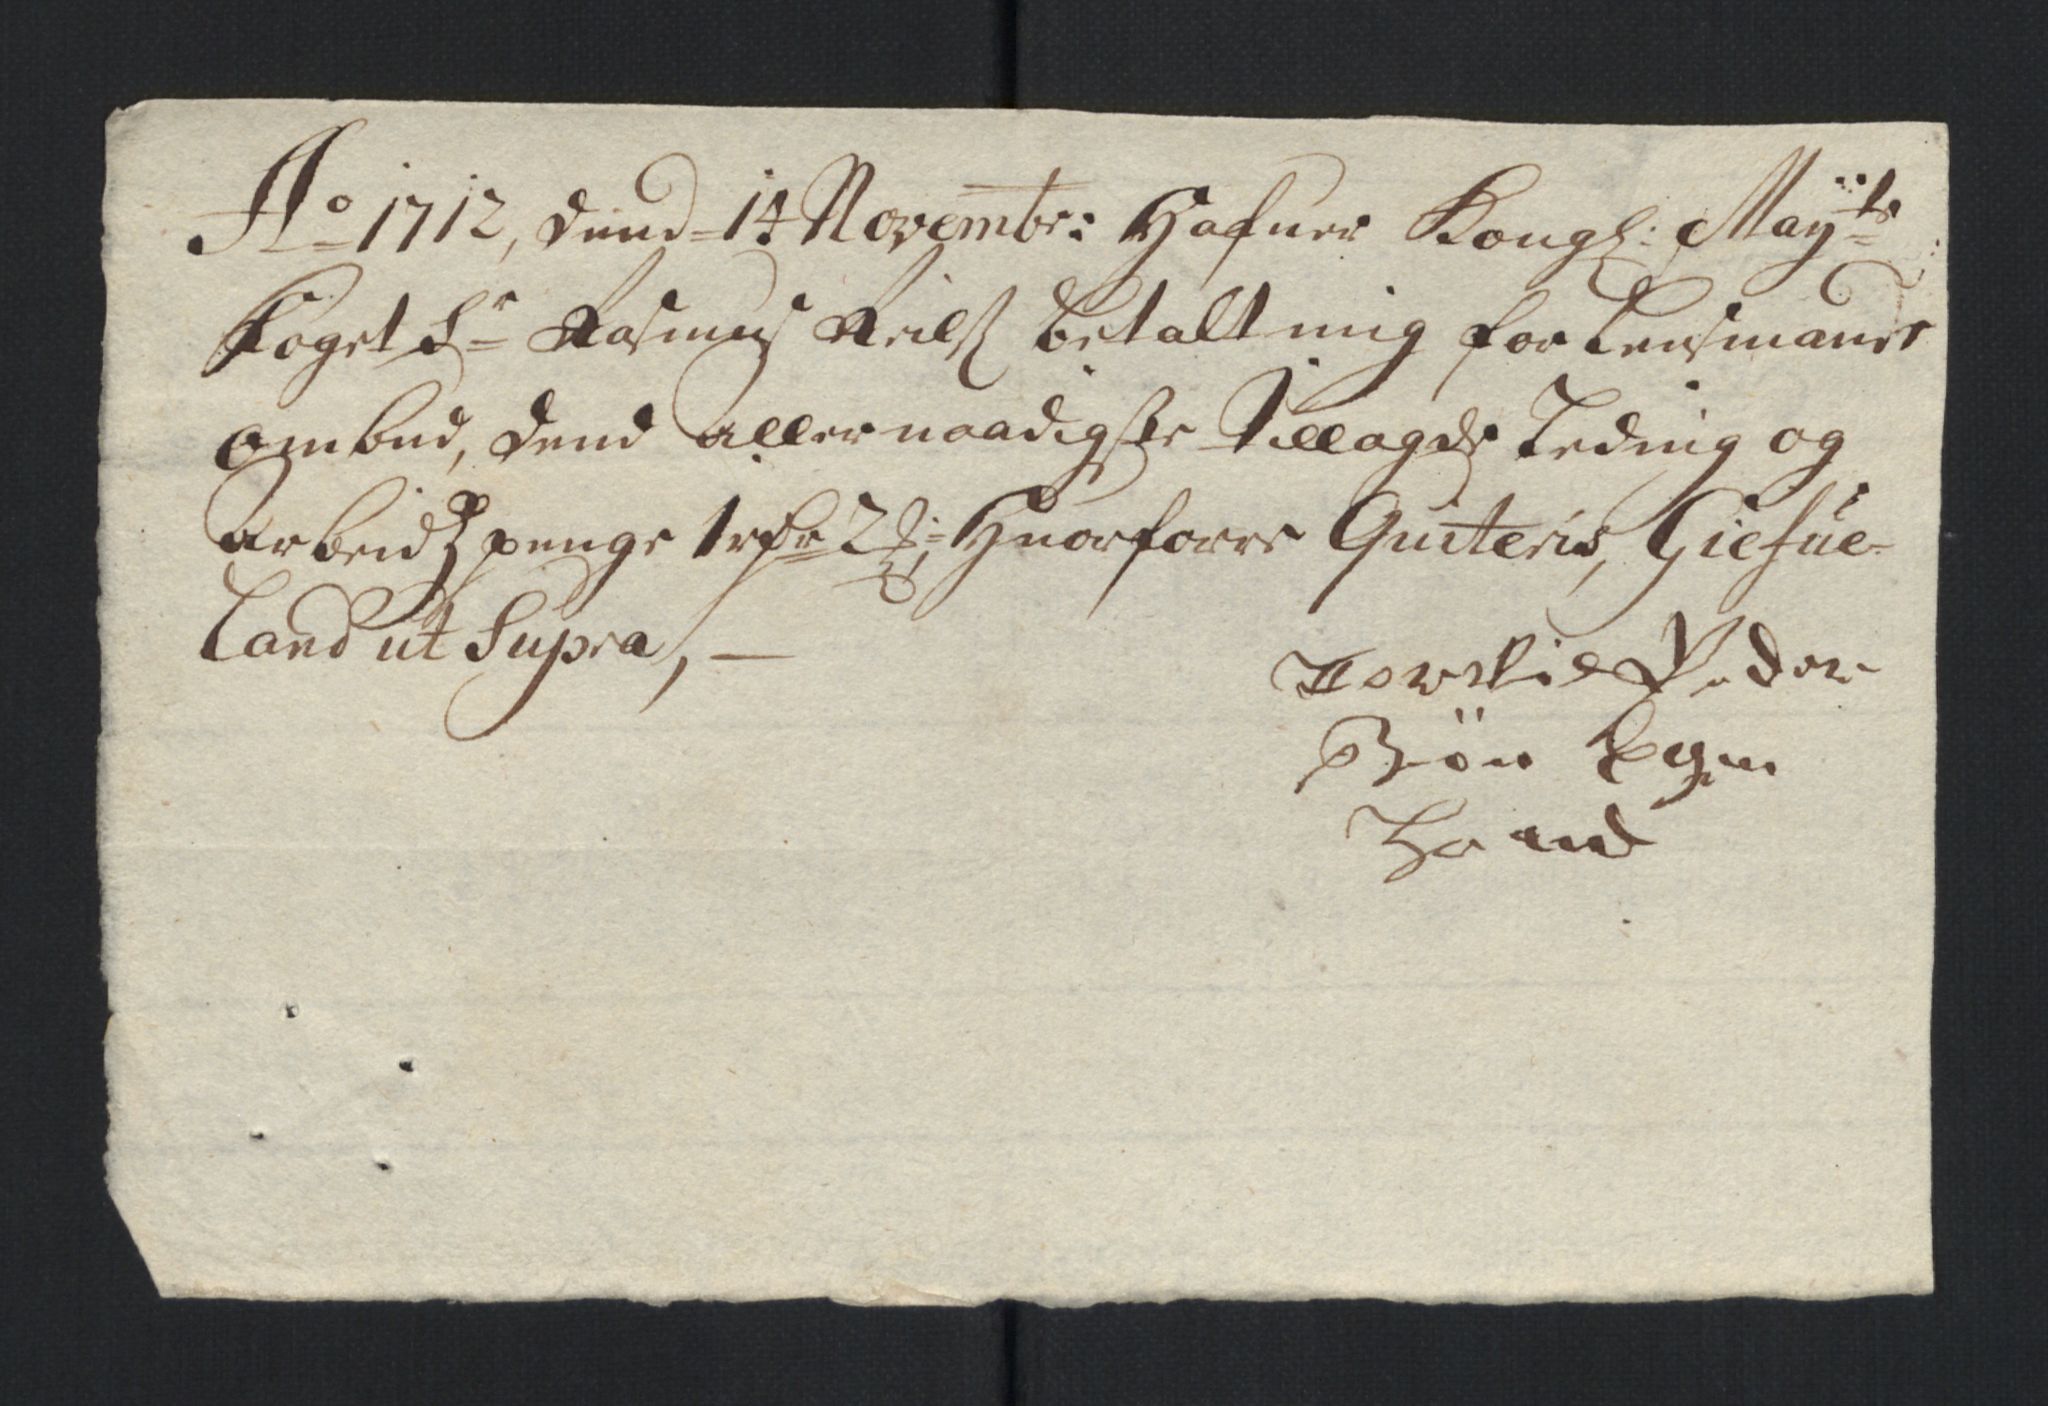 Ao 1712, dend 14 Novembr: Hafuer Kongl: Mayts
Foget Sr Rasmus Neilß betalt mig for Lensmands
ombud, dend allernaadigste Tillagde Leding og
arbeidtz penge 1 rdr 2 ß: Huorforre Quiteris, Giesue-
land ut Supra, —
Peder
Biön Egen
Hand